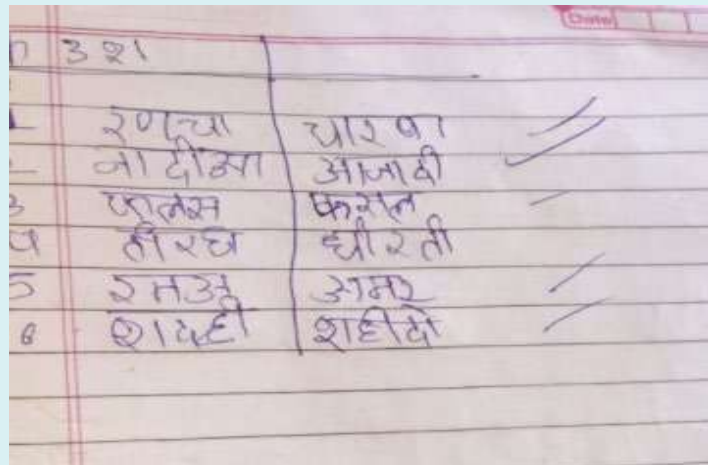 Date
उ श
1 रणचा चारण
2 जादीआ आजादी
3 फलस फसल
4 तीरध धीरती
5 रमअ अमर
6 शदही शहीदो